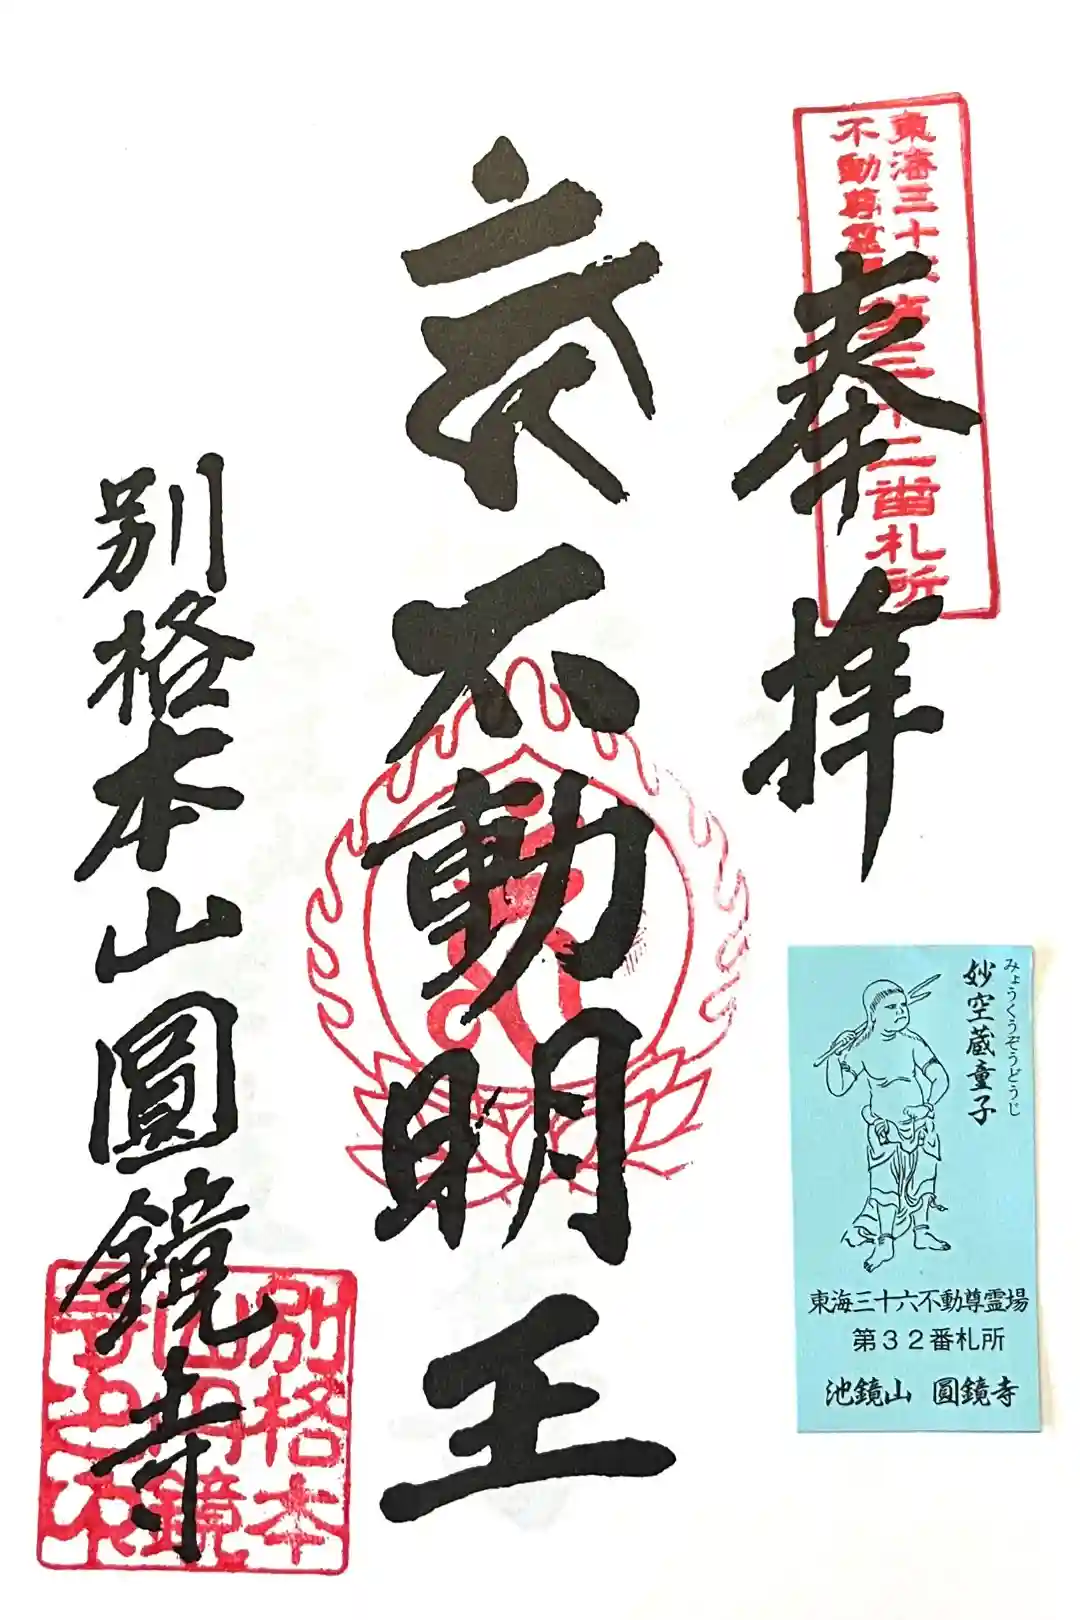 奉拝
東海三十六
不動尊霊場
第三十二番札所
不動明王
別格本山圓鏡寺
別格本
山圓鏡
寺之印
みょうくうぞうどうじ
妙空蔵童子
東海三十六不動尊霊場
第32番札所
池鏡山 圓鏡寺